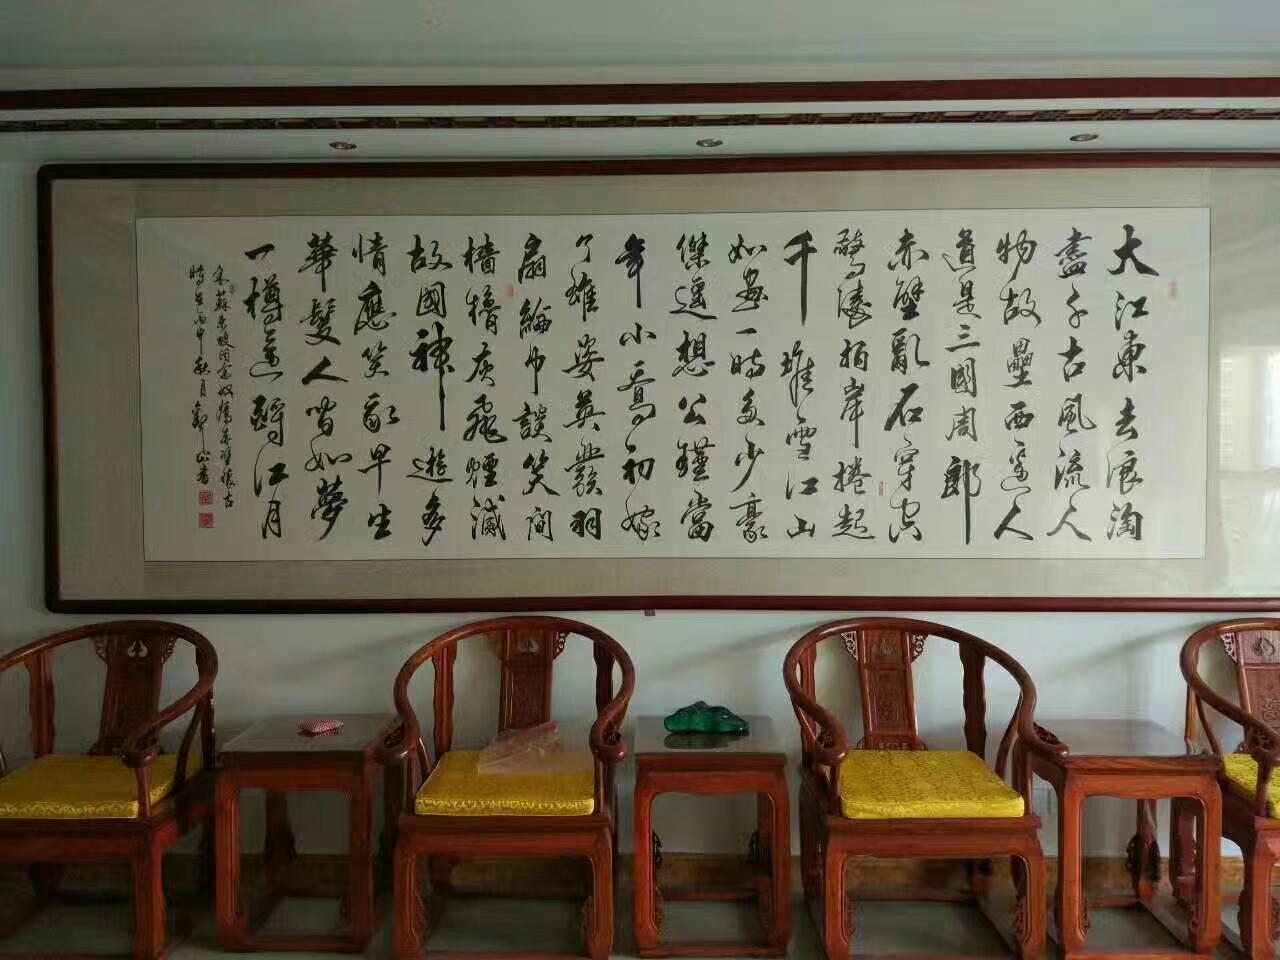 大江東去浪淘
盡千古風流人
物故壘西邊人
道是三國周郎
赤壁亂石穿空
驚濤拍岸捲起
千堆雪江山
如畫一時多少豪
傑遥想公瑾當
年小喬初嫁
了雄姿英發羽
扇綸巾談笑間
檣櫓灰飛煙滅
故國神遊多
情應笑我早生
華髮人間如夢
一樽還酹江月
宋蘇東坡詞念奴嬌赤壁懷古
時在丙申秋月